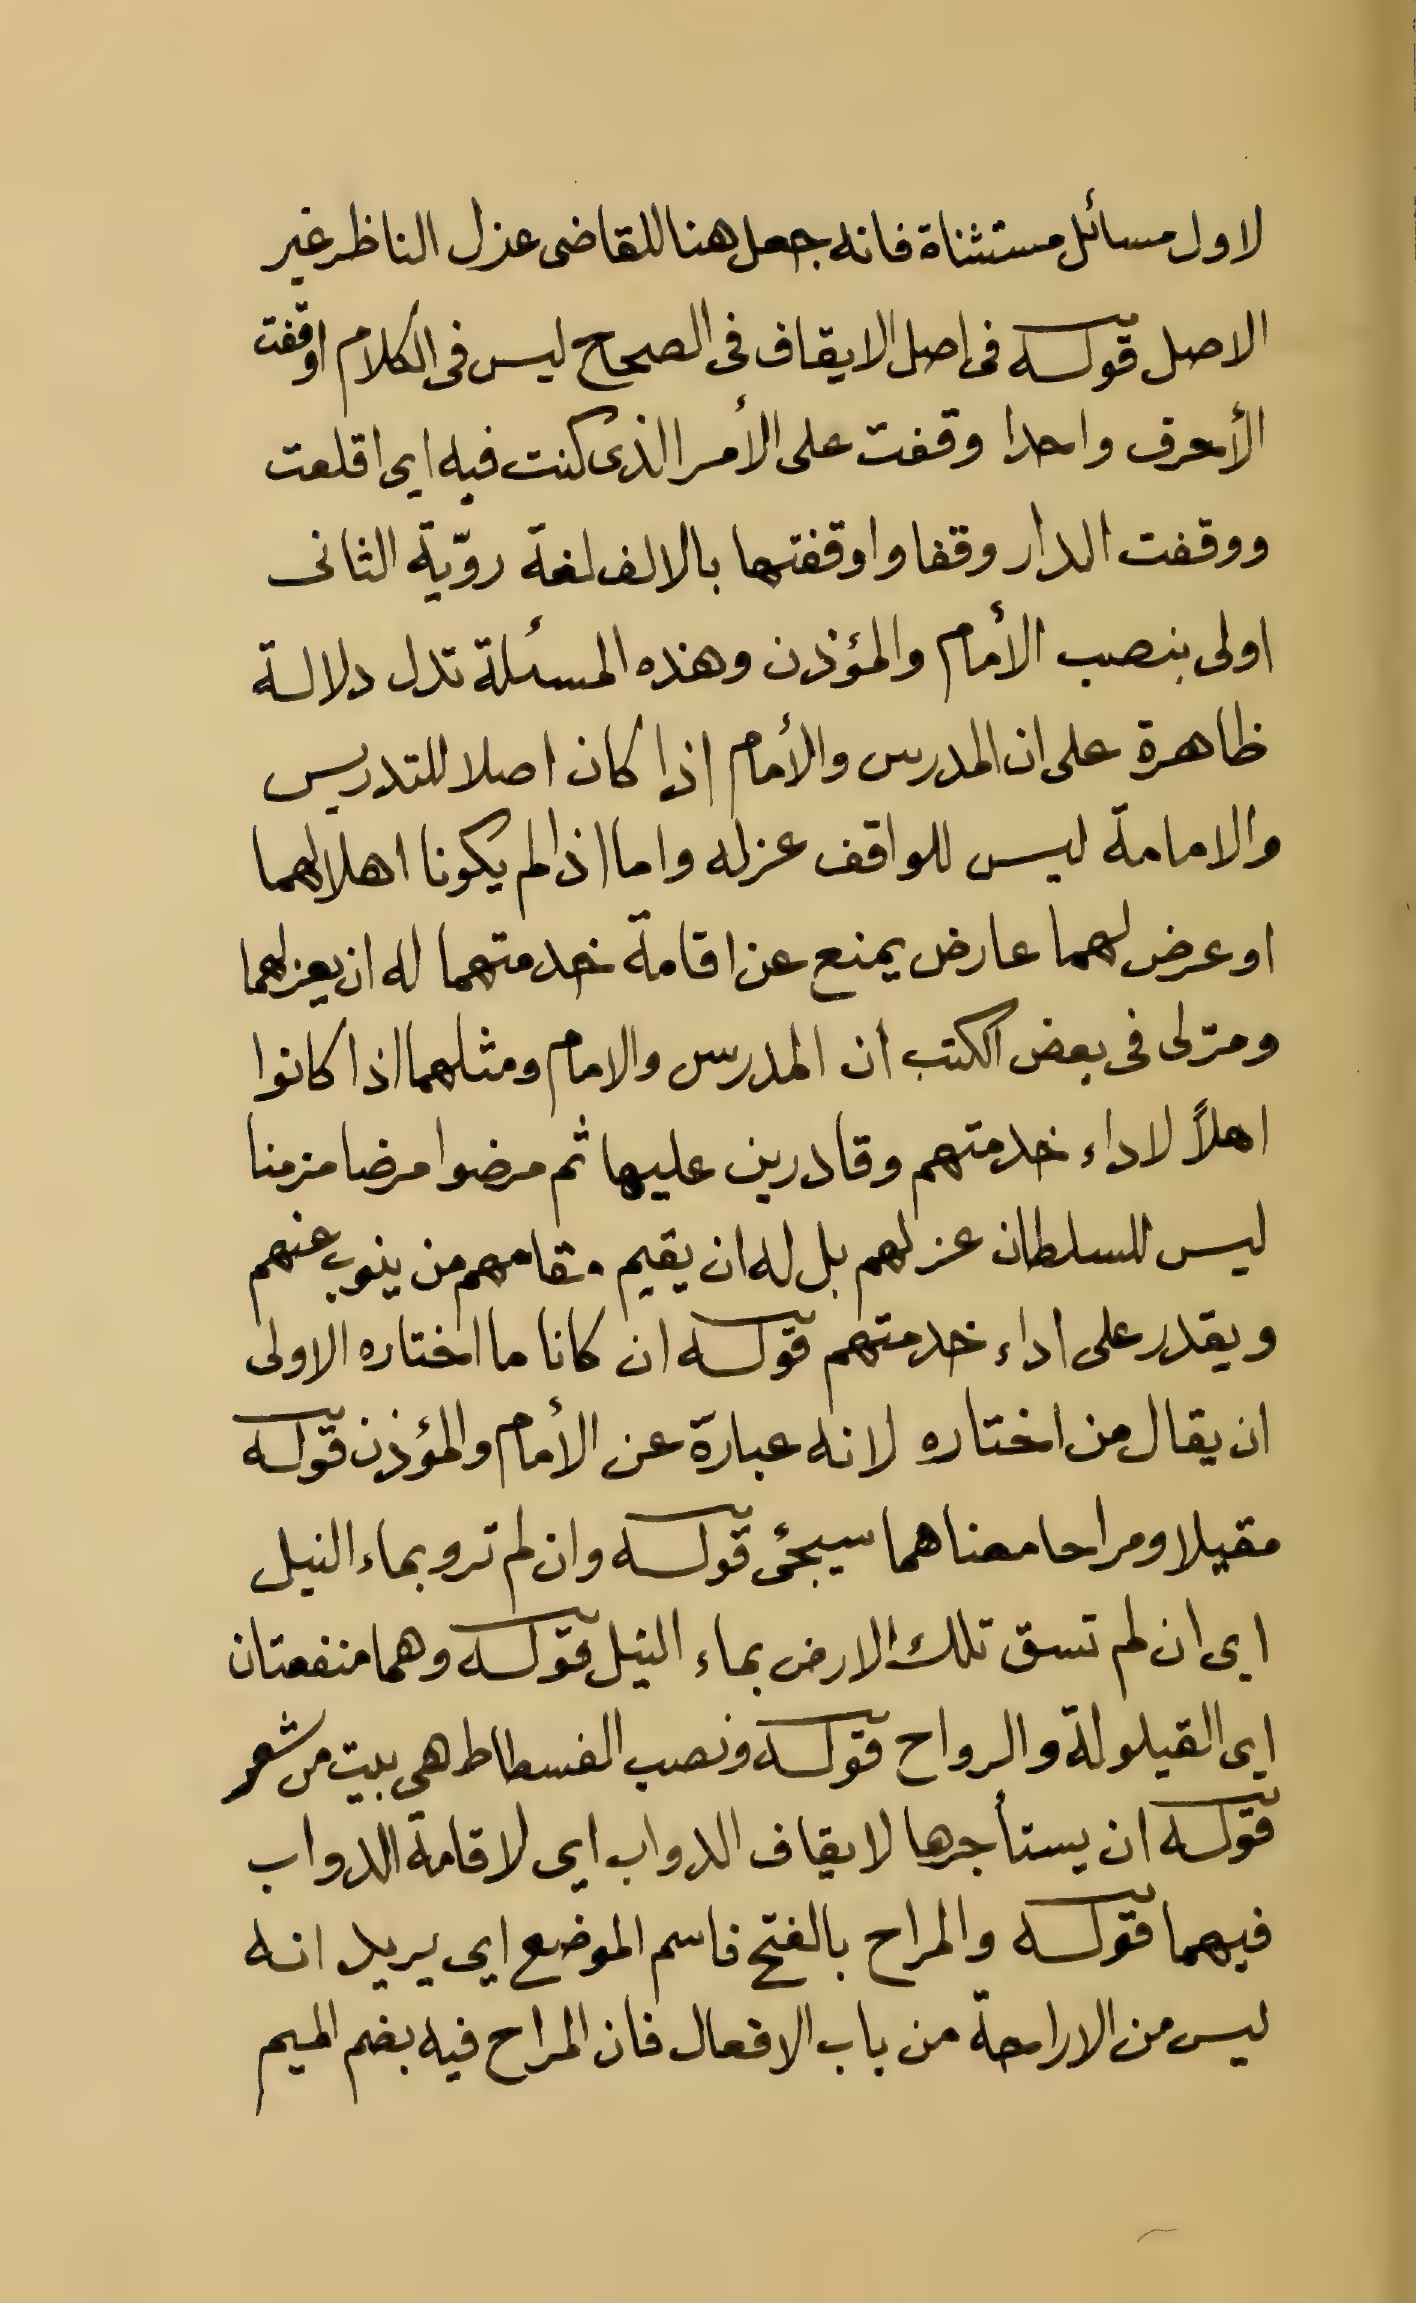 لاول مسائل مستثناة فانه جعل هنا للقاضى عزل الناظر غير
الاصل قوله فى اصل الايقاف فى الصحاح ليس فى الكلام اوقفت
الأحرف واحدا وقفت على الأمر الذى كنت فيه اى اقلعت
ووقفت الدار وقفا واوقفتها بالالف لغة رويّة الثانى
اولى بنصب الأمام والمؤذن وهذه المسئلة تدل دلالة
ظاهرة على ان المدرس والأمام اذا كان اصلا للتدريس
والامامة ليس للواقف عزله واما اذا لم يكونا اهلا لهما
او عرض لهما عارض يمنع عن اقامة خدمتهما له ان يعزلهما
ومرّ لى فى بعض الكتب ان المدرس والامام ومثلهما اذا كانوا
اهلاً لاداء خدمتهم وقادرين عليها ثم مرضوا مرضا مزمنا
ليس للسلطان عزلهم بل له ان يقيم مقامهم من ينوب عنهم
ويقدر على اداء خدمتهم قوله ان كانا ما اختاره الاولى
ان يقال من اختاره لانه عبارة عن الأمام والمؤذن قوله
مقيلا ومراحا معناهما سيجئ قوله وان لم ترو بماء النيل
اى ان لم تسق تلك الارض بماء النيل قوله وهما منفعتان
اى القيلولة والرواح قوله ونصب الفسطاط هى بيت من شعر
قوله ان يستأجرها لايقاف الدواب اى لاقامة الدواب
فيهما قوله والمراح بالفتح فاسم الموضع اى يريد انه
ليس من الاراحة من باب الافعال فان المراح فيه بضم الميم